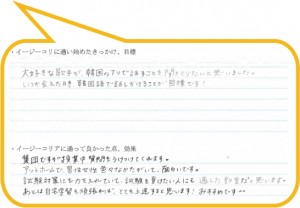 ・イージーコリアに通い始めたきっかけ、目標
大好きな歌手が、韓国のアプリで話すことを聞きとりたいと思いました。
いつか会えた時、韓国語で話しかけることが目標です！
・イージーコリアに通って良かった点、効果
賛団ですが授業中質問をうけつけてくれます。
アットホームで、男性女性色々なかたがいて、面白いです。
試験対策にも力を入れていて、試験を受けたい人にも適した教室だと思います。
あとは自宅学習も頑張れば、とても上達すると思います！おすすめです〜